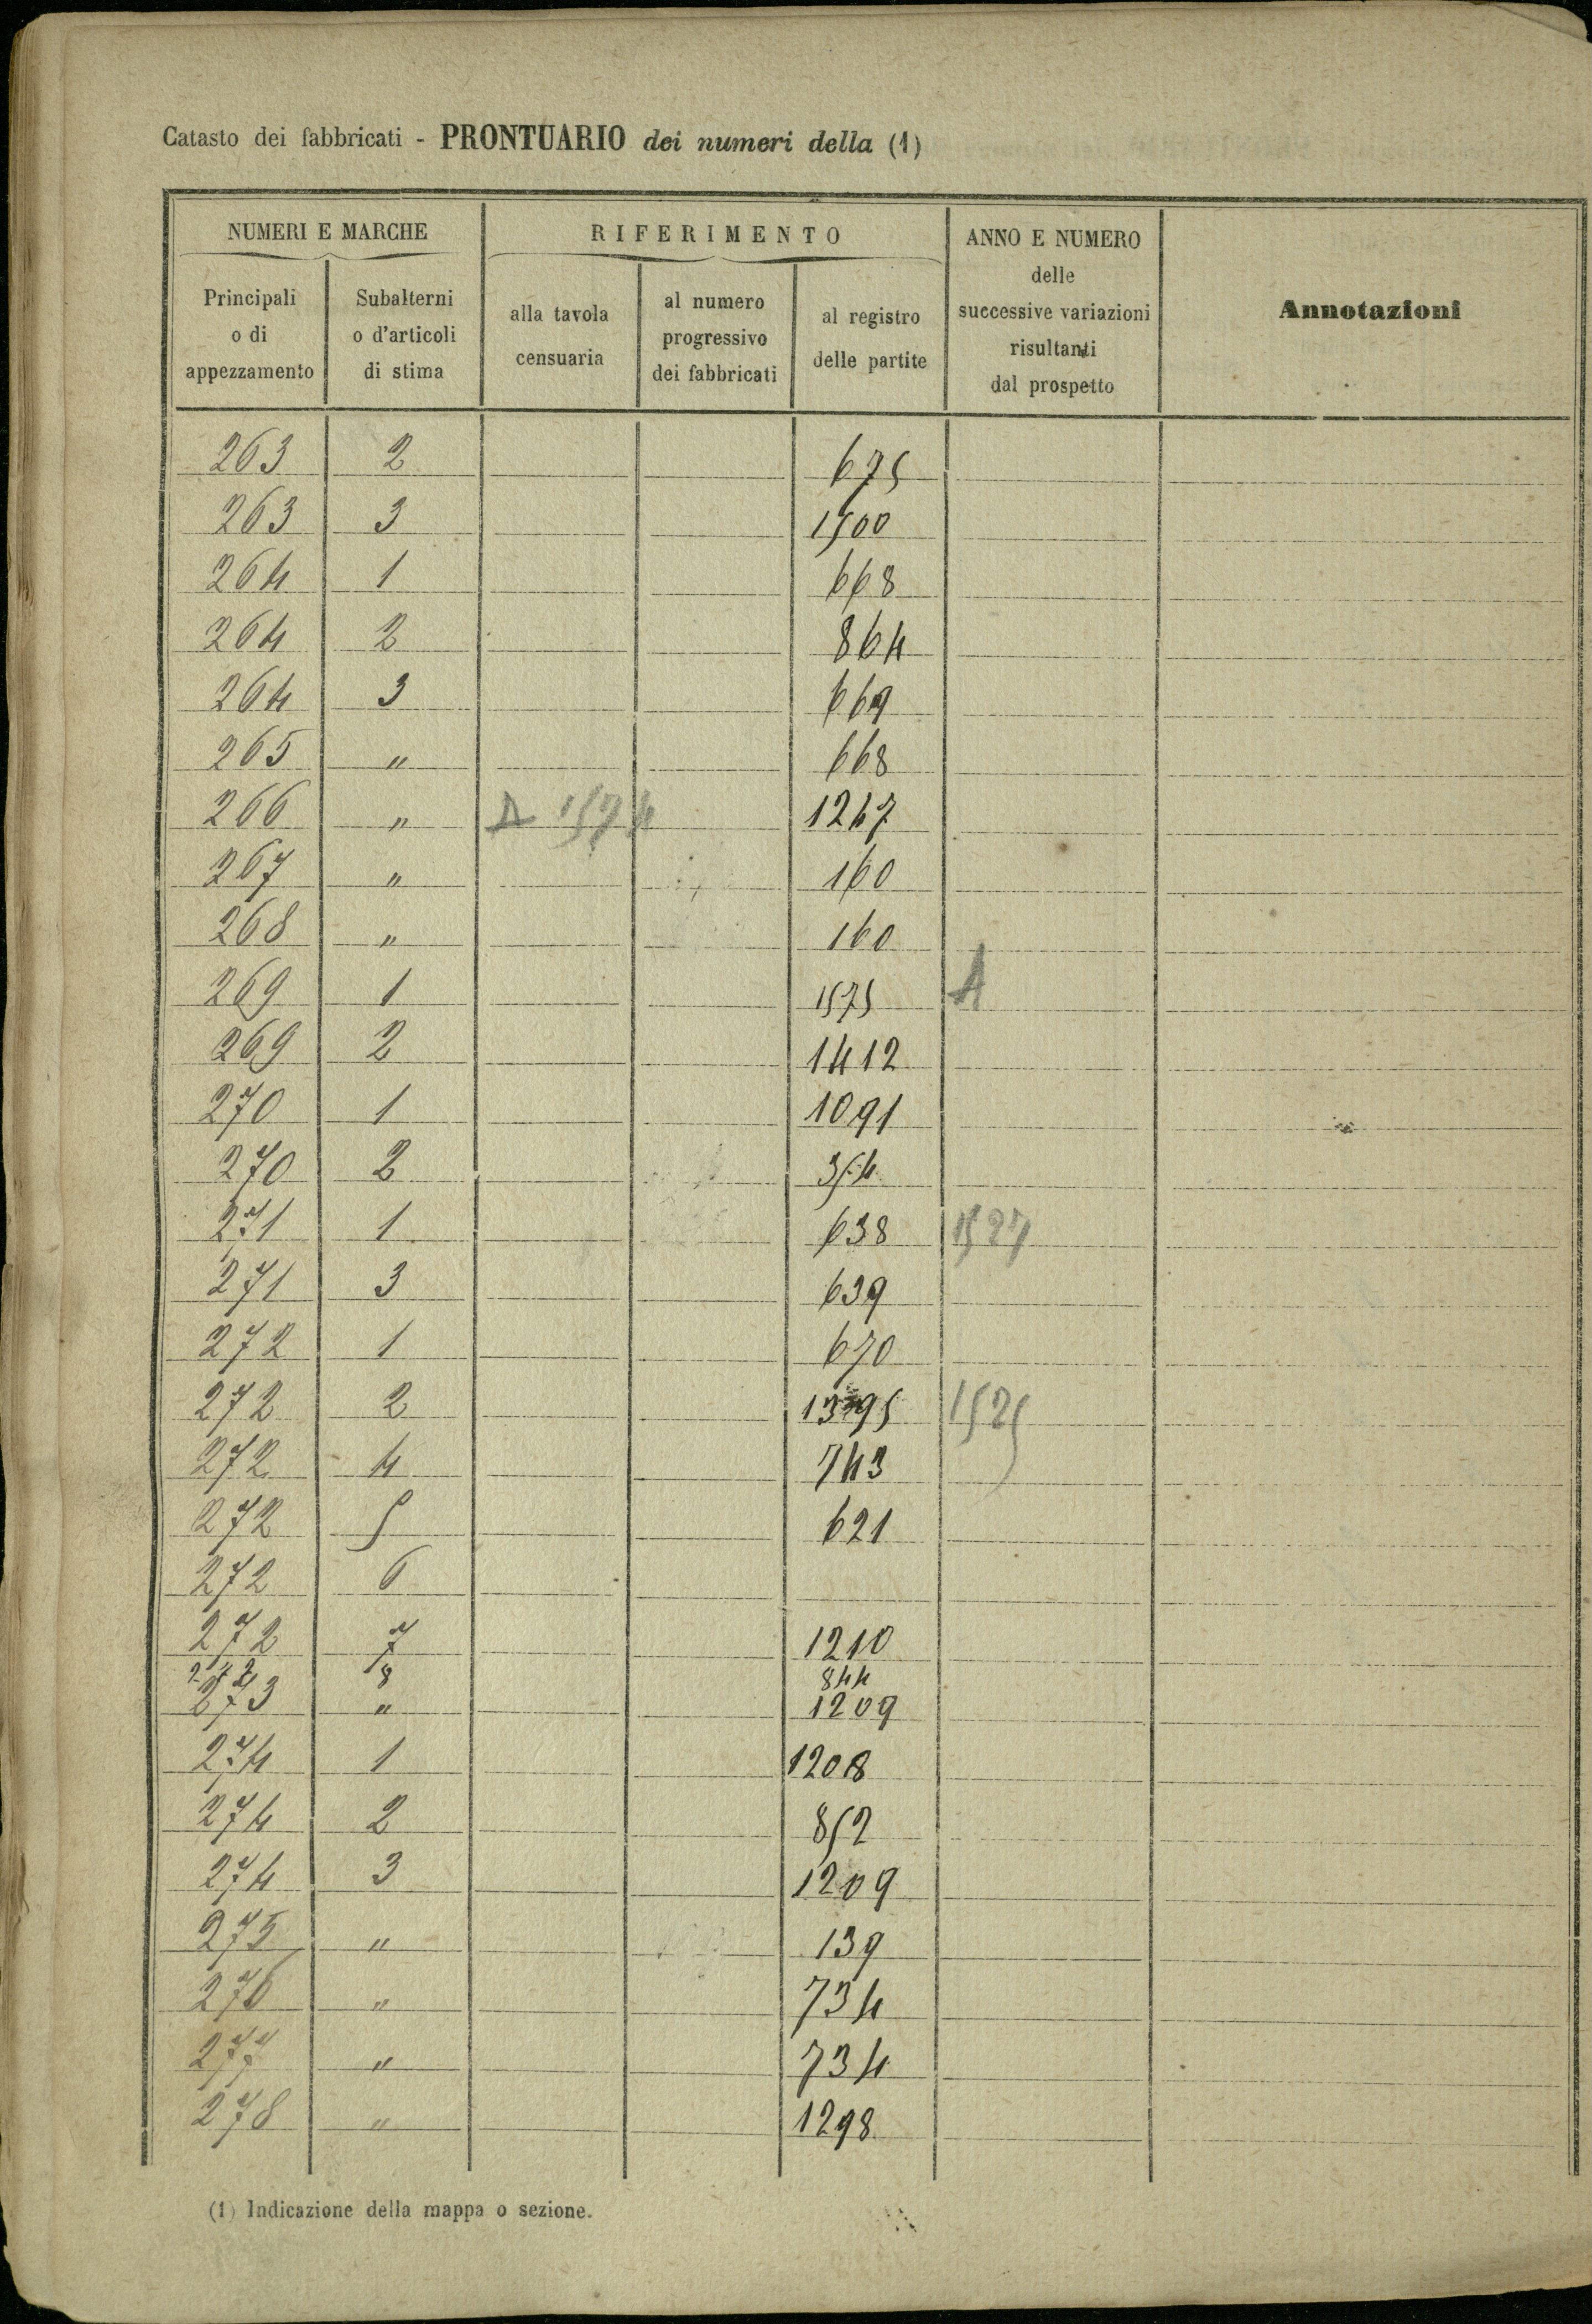 Catasto dei fabbricati - PRONTUARIO dei numeri della (1)
NUMERI E MARCHE
RIFERIMENTO
ANNO E NUMERO
delle
successive variazioni
risultanti
dal prospetto
Annotazioni
Principali
o di
appezzamento
Subalterni
o d'articoli
di stima
alla tavola
censuaria
al numero
progressivo
dei fabbricati
al registro
delle partite
263 2 675
263 3 1500
264 1 668
264 2 864
264 3 669
265 " 668
266 " 1574 1267
267 " 160
268 " 160
269 1 1575 A
269 2 1412
270 1 1091
270 2 354
271 1 638 1527
271 3 639
272 1 670
272 2 1395 1525
272 4 743
272 5 621
272 6
272 7 1210
272 8 844
273 " 1209
274 1 1208
274 2 852
274 3 1209
275 " 139
276 " 734
277 " 734
278 " 1298
(1) Indicazione della mappa o sezione.